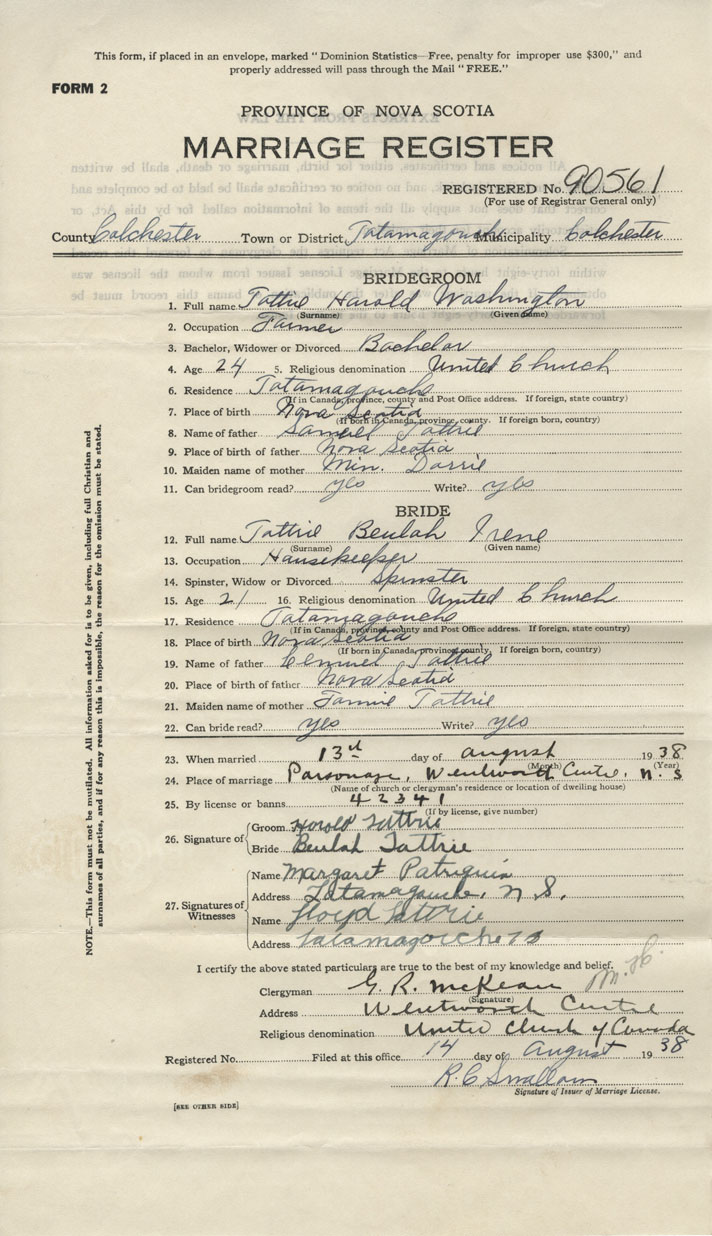 This form, if placed in an envelope, marked "Dominion Statistics—Free, penalty for improper use $300," and
properly addressed will pass through the Mail "FREE."
FORM 2
PROVINCE OF NOVA SCOTIA
MARRIAGE REGISTER
REGISTERED No. 90561
(For use of Registrar General only)
County Colchester Town or District Tatamagouche Municipality Colchester
BRIDEGROOM
1. Full name Tattrie Harold Washington
(Surname) (Given name)
2. Occupation Farmer
3. Bachelor, Widower or Divorced Bachelor
4. Age 24 5. Religious denomination United Church
6. Residence Tatamagouche
(If in Canada, province, county and Post Office address. If foreign, state country)
7. Place of birth Nova Scotia
(If born in Canada, province, county. If foreign born, country)
8. Name of father Samuel Tattrie
9. Place of birth of father Nova Scotia
10. Maiden name of mother Min.
11. Can bridegroom read? yes Write? yes
BRIDE
12. Full name Tattrie Beulah Irene
(Surname) (Given name)
13. Occupation Housekeeper
14. Spinster, Widow or Divorced Spinster
15. Age 21 16. Religious denomination United Church
17. Residence Tatamagouche
(If in Canada, province, county and Post Office address. If foreign, state country)
18. Place of birth Nova Scotia
(If born in Canada, province, county. If foreign born, country)
19. Name of father Tattrie
20. Place of birth of father Nova Scotia
21. Maiden name of mother Fannie Tattrie
22. Can bride read? yes Write? yes
23. When married 13th day of August 1938
(Month) (Year)
24. Place of marriage Parsonage, Wentworth Centre, N. S
(Name of church or clergyman's residence or location of dwelling house)
25. By license or banns 42341
(If by license, give number)
26. Signature of
Groom Harold Tattrie
Bride Beulah Tattrie
27. Signatures of Witnesses
Name Margaret Patriquin
Address Tatamagouche, N S.
Name Floyd Tattrie
Address Tatamagouche NS
I certify the above stated particulars are true to the best of my knowledge and belief.
Clergyman G. R. McKean
(Signature)
Address Wentworth Centre
Religious denomination United Church of Canada
Registered No. Filed at this office 14 day of August 1938
R. C Smallam
Signature of Issuer of Marriage License.
[SEE OTHER SIDE]
NOTE.—This form must not be mutilated. All information asked for is to be given, including full Christian and
surnames of all parties, and if for any reason this is impossible, the reason for the omission must be stated.